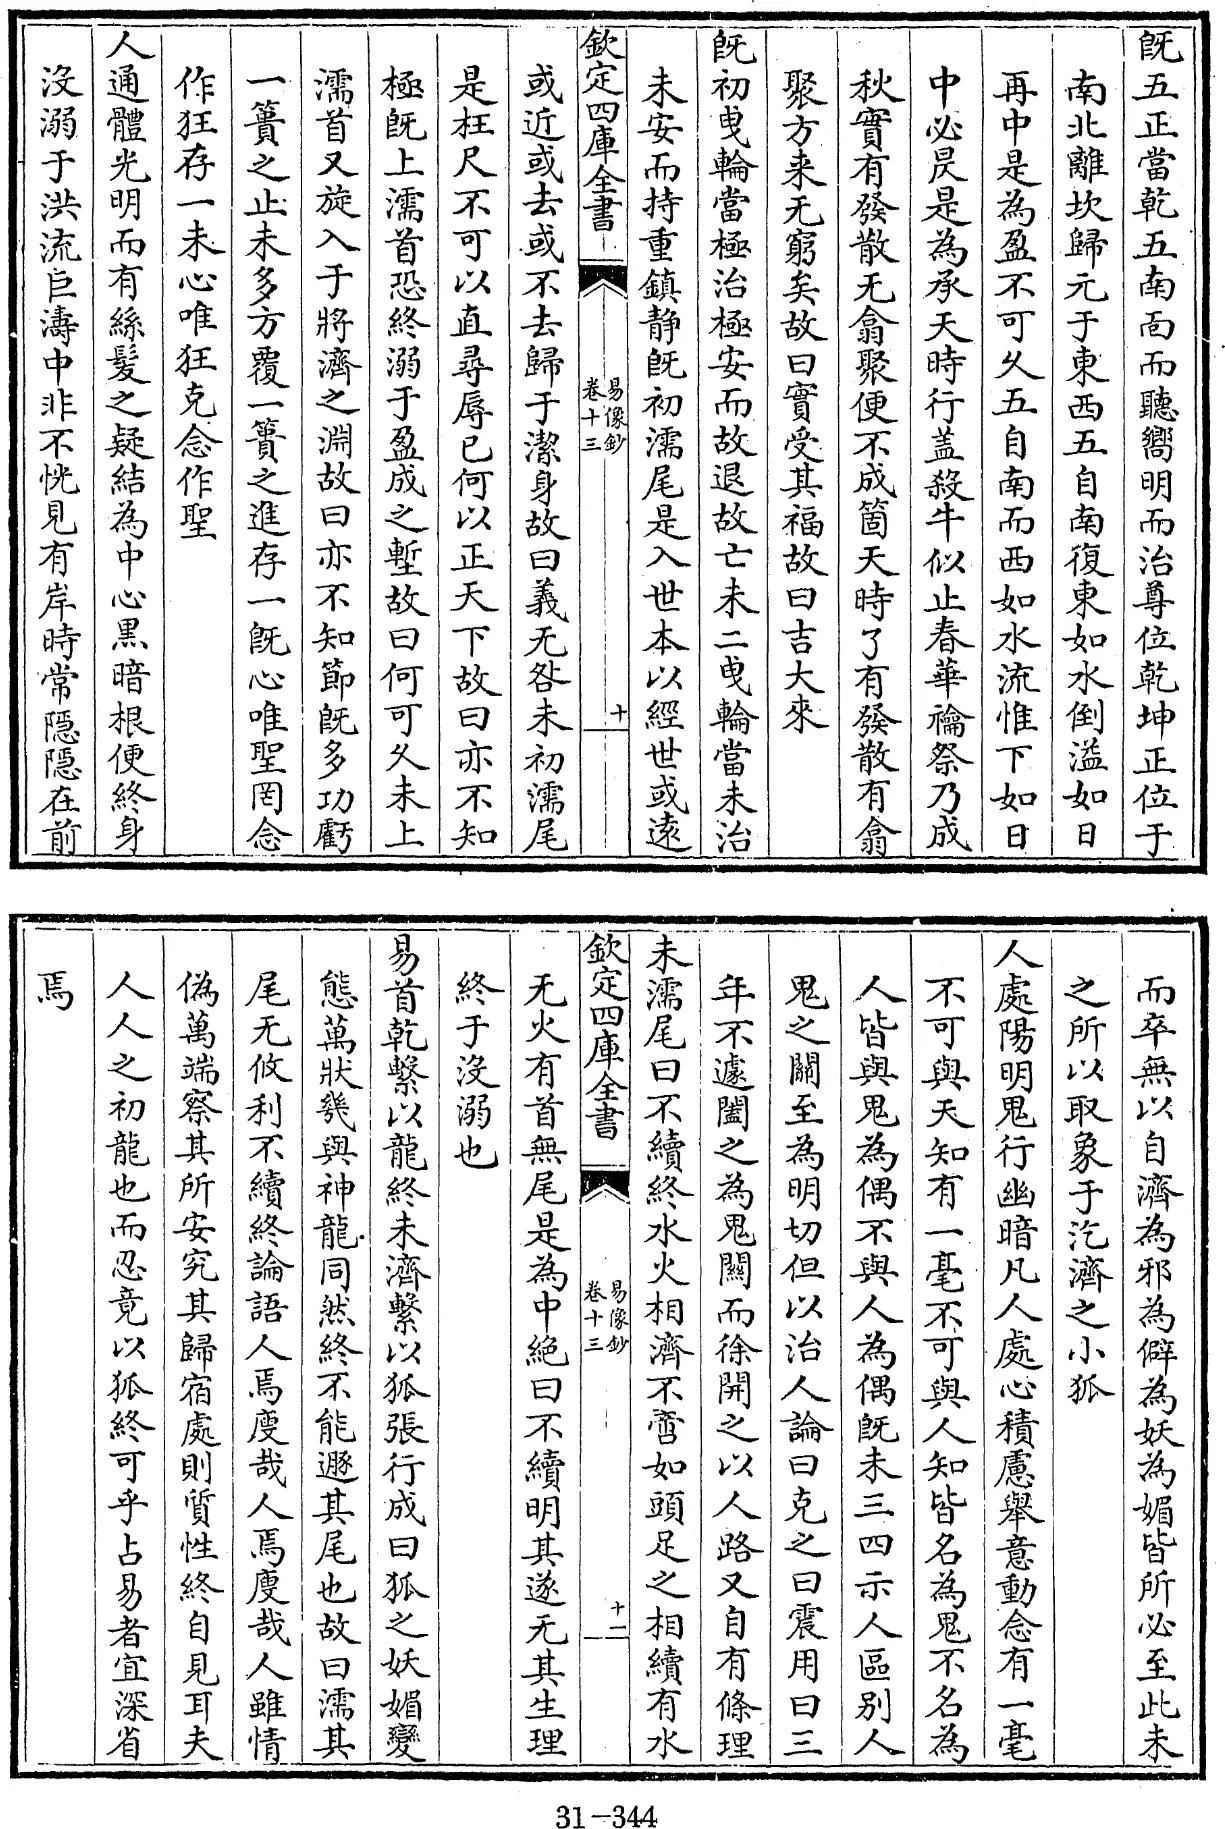 旣五正當乾五南面而聽嚮明而治尊位乾坤正位于
南北離坎歸元于東西五自南復東如水倒溢如日
再中是為盈不可久五自南而西如水流惟下如日
中必昃是為承天時行盖殺牛似止春華禴祭乃成
秋實有發散无翕聚便不成箇天時了有發散有翕
聚方来无窮矣故曰實受其福故曰吉大來
旣初曳輪當極治極安而故退故亡未二曳輪當未治
未安而持重鎮静旣初濡尾是入世本以經世或遠
欽定四庫全書
易像鈔
卷十三
十
或近或去或不去歸于潔身故曰義无咎未初濡尾
是枉尺不可以直尋辱已何以正天下故曰亦不知
極旣上濡首恐終溺于盈成之塹故曰何可久未上
濡首又旋入于將濟之淵故曰亦不知節旣多功虧
一簣之止未多方覆一簣之進存一旣心唯聖罔念
作狂存一未心唯狂克念作聖
人通體光明而有絲髮之疑結為中心黒暗根便終身
没溺于洪流巨濤中非不恍見有岸時常隱隱在前
而卒無以自濟為邪為僻為妖為媚皆所必至此未
之所以取象于汔濟之小狐
人處陽明鬼行幽暗凡人處心積慮舉意動念有一毫
不可與天知有一毫不可與人知皆名為鬼不名為
人皆與鬼為偶不與人為偶旣未三四示人區别人
鬼之關至為明切但以治人論曰克之曰震用曰三
年不遽闔之為鬼關而徐開之以人路又自有條理
未濡尾曰不續終水火相濟不啻如頭足之相續有水
欽定四庫全書
易像鈔
卷十三
十二
无火有首無尾是為中絶曰不續明其遂无其生理
終于没溺也
易首乾繫以龍終未濟繫以狐張行成曰狐之妖媚變
態萬狀幾與神龍同然終不能遯其尾也故曰濡其
尾无攸利不續終論語人焉廋哉人焉廋哉人雖情
偽萬端察其所安究其歸宿處則質性終自見耳夫
人人之初龍也而忍竟以狐終可乎占易者宜深省
焉
31-344